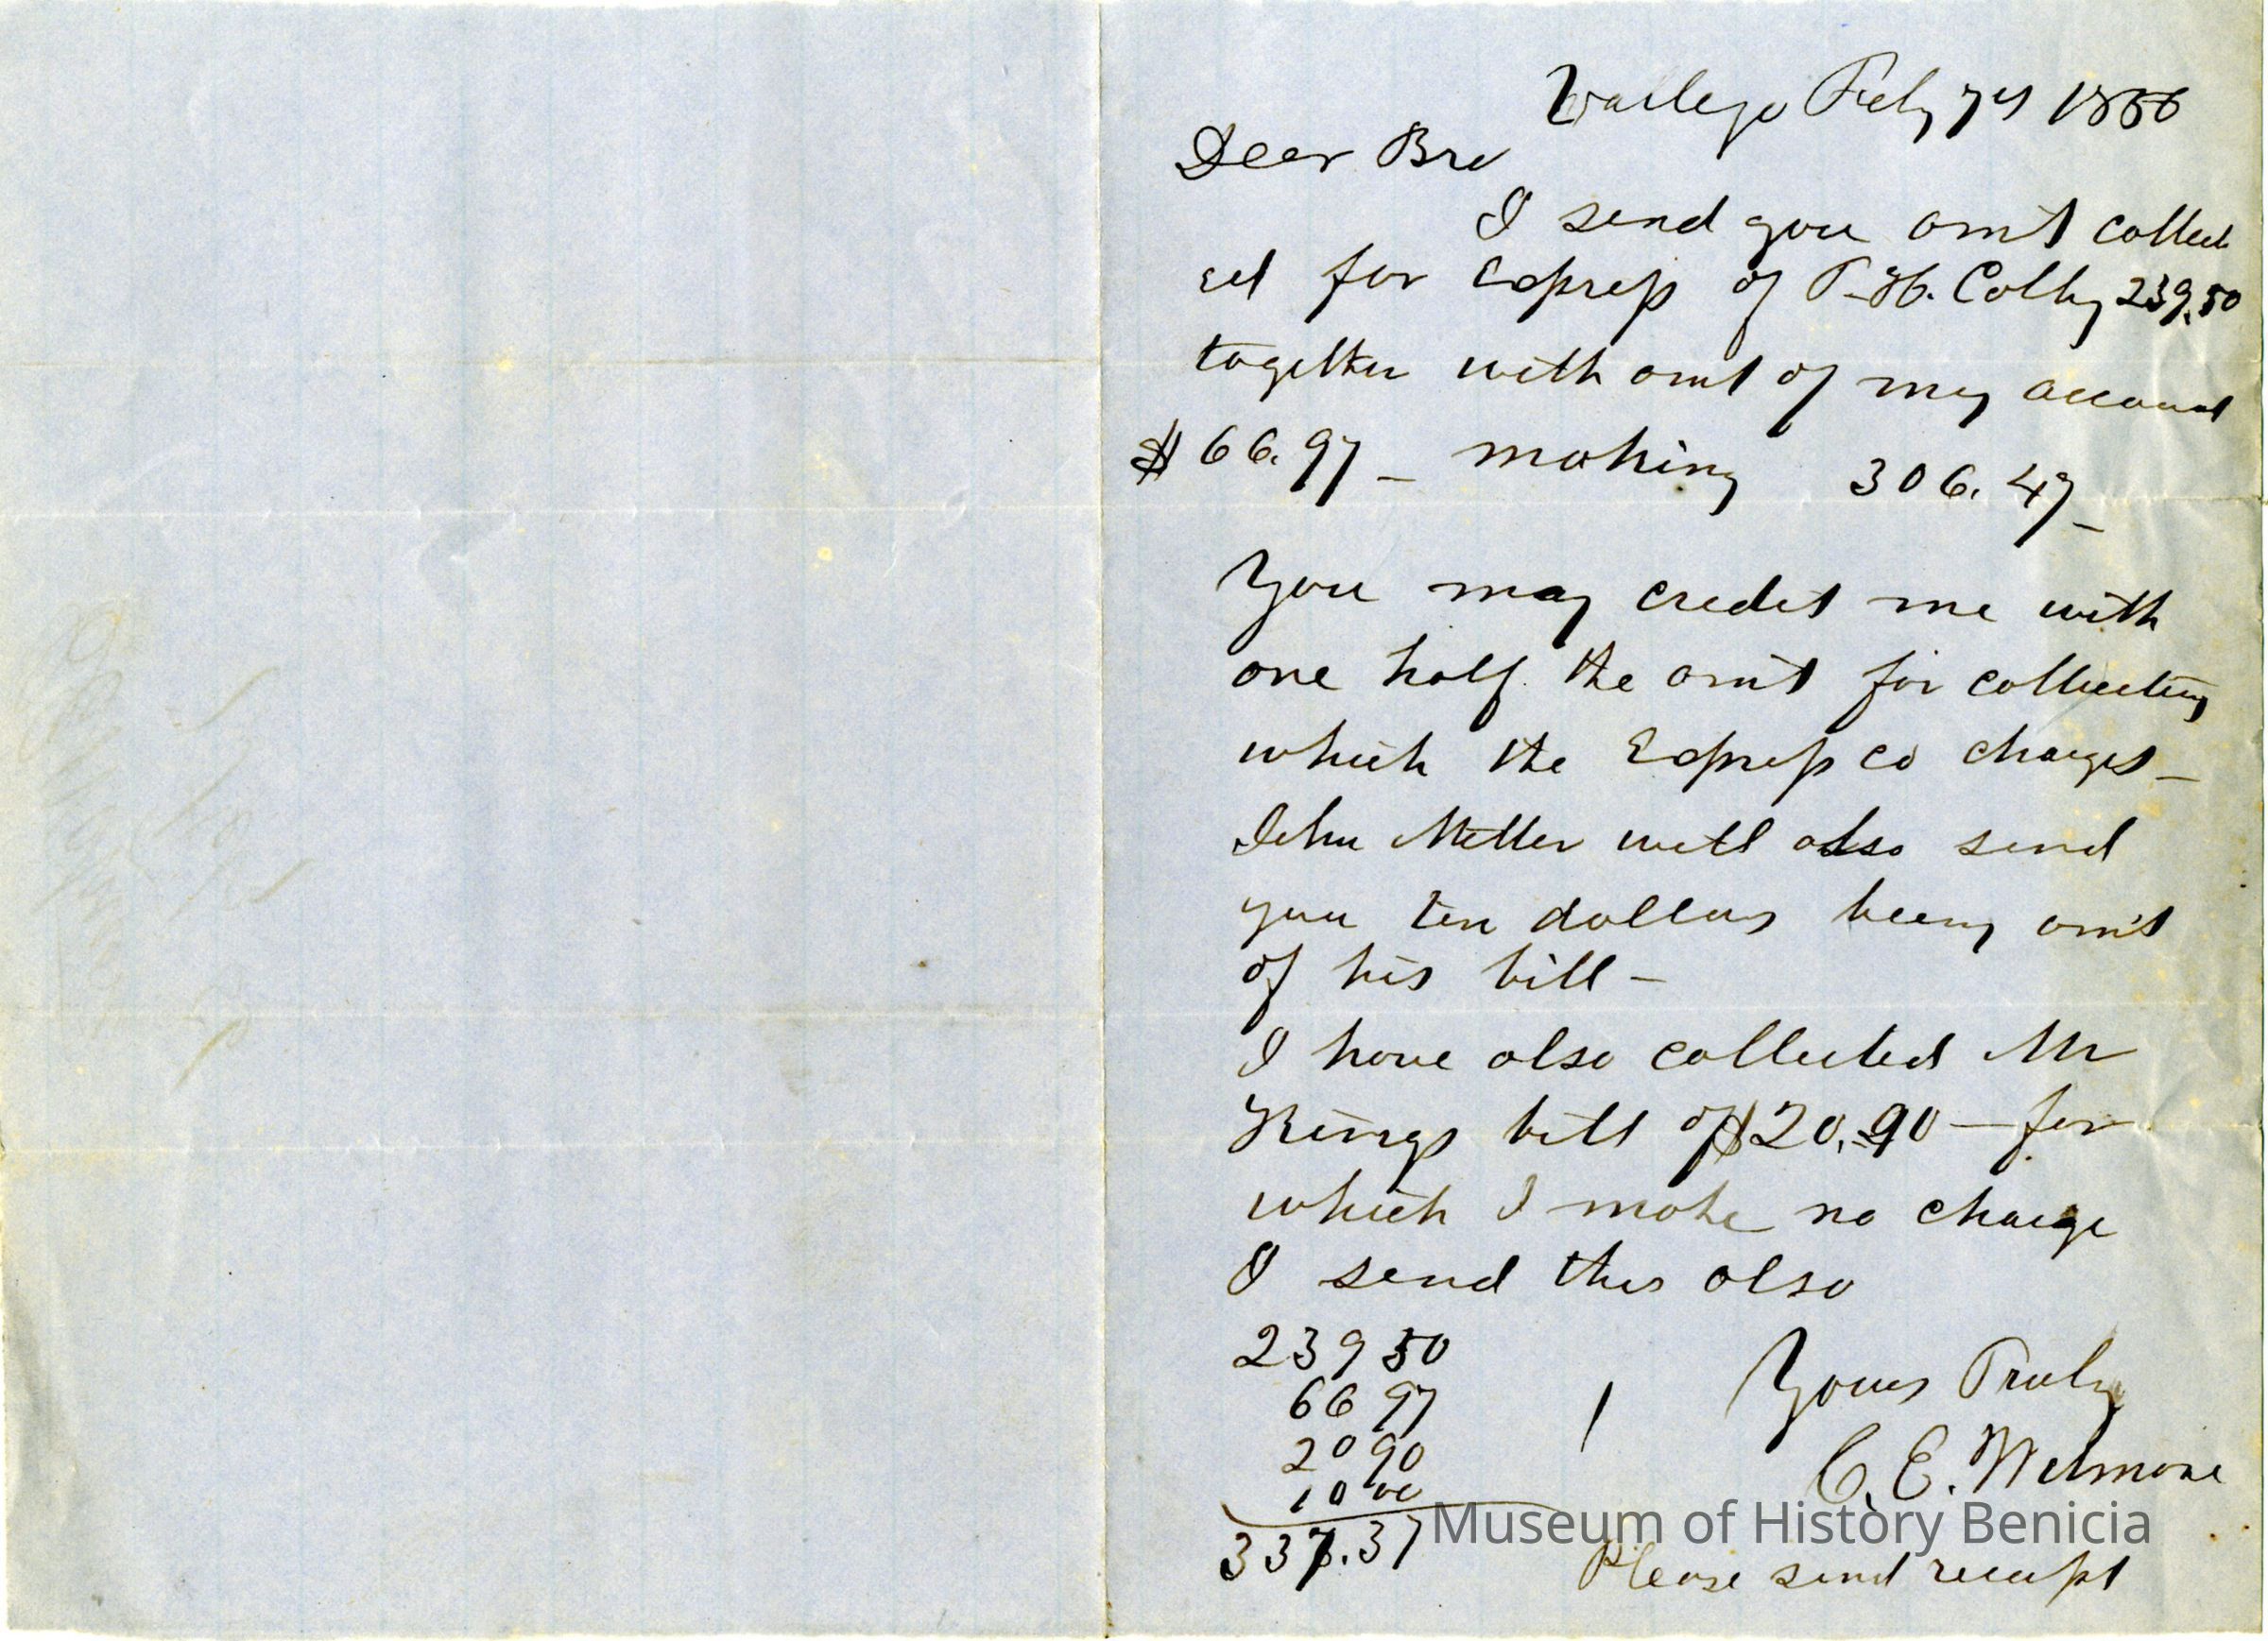 Vallejo Feby 7th 1856
Dear Bro
I send you am't collect
ed for Express of T. H. Colby 239.50
together with amt of my account
$66.97 – making 306.47 –
You may credit me with
one half the am't for collecting
which the Express co charges –
John Miller will also send
you ten dollars being am't
of his bill –
I have also collected Mr
Kings bill of $20.90 — for
which I make no charge
I send this also
239 50
66 97
20 90
10 00
337.37
Yours Truly
C. E. Wetmore
Please send receipt
Museum of History Benicia